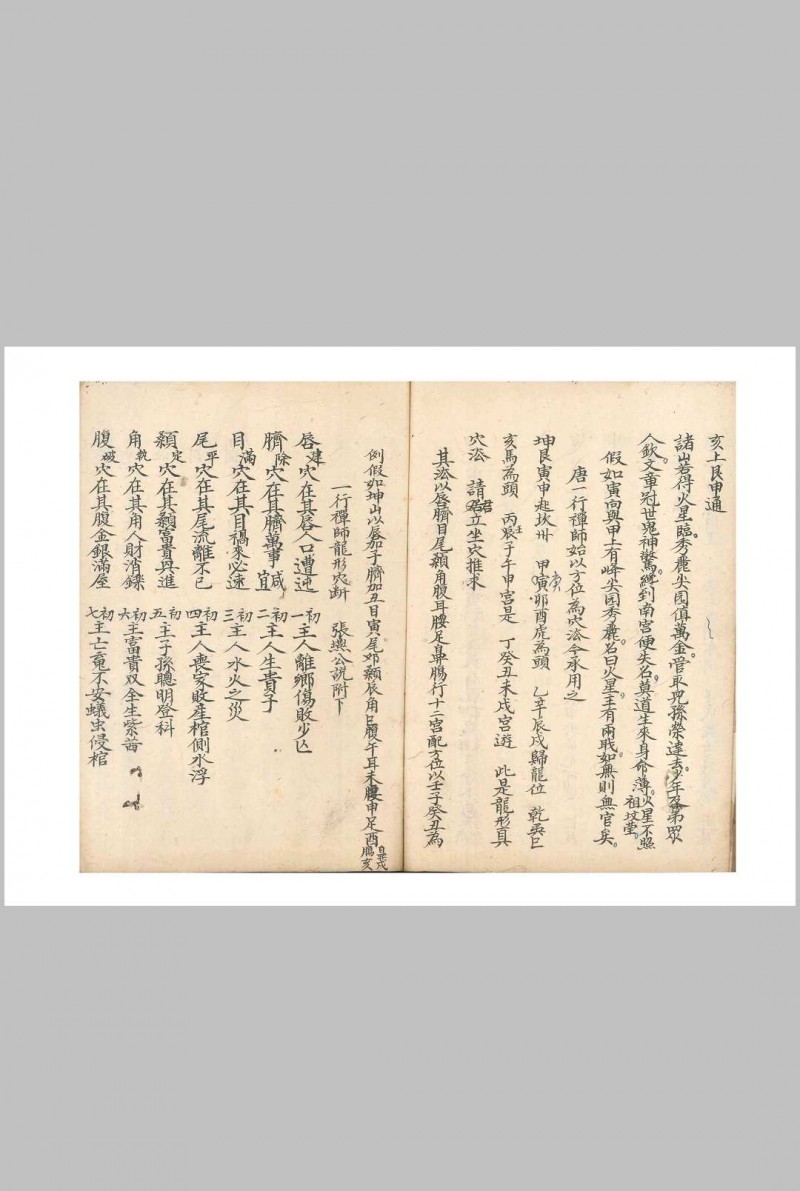 亥上艮申通
諸山若得火星臨秀麗尖圓值萬金管取兒孫榮達去少年及第眾
人欽文章冠世鬼神驚纔到南宮便失名莫道生來身命薄火星不照祖坟瑩
假如寅向與甲上有峰尖圓秀麗名曰火星主有兩戰如無則無官矣
唐一行禪師始以方位為穴法今承用之
坤艮寅申起坎州 甲寅庚卯酉虎為頭 乙辛辰戌歸龍位 乾巽巳
亥馬為頭 丙壬子午申宮是 丁癸丑未戌宮遊 此是龍形真
穴法 請君立坐穴推求
其法以唇臍目尾顙角腹耳腰足鼻腸行十二宮配方位以壬子癸丑為
例假如坤山以唇加子臍加丑目寅尾卯顙辰角巳腹午耳未腰申足酉鼻戌腸亥
一行禪師龍形穴断 張燕公説附下
唇建穴在其唇人口遭迍 初一主人離鄉傷敗少亡
臍除穴在其臍萬事咸宜 初二主人生貴子
目滿穴在其目禍來必速 初三主人水火之災
尾平穴在其尾流離不已 初四主人喪家敗産棺側水浮
顙定穴在其顙富貴與進 初五主子孫聰明登科
角執穴在其角人財消鑠 初六主富貴双全生紫茜
腹破穴在其腹金銀滿屋 初七主亡魂不安蟻虫侵棺